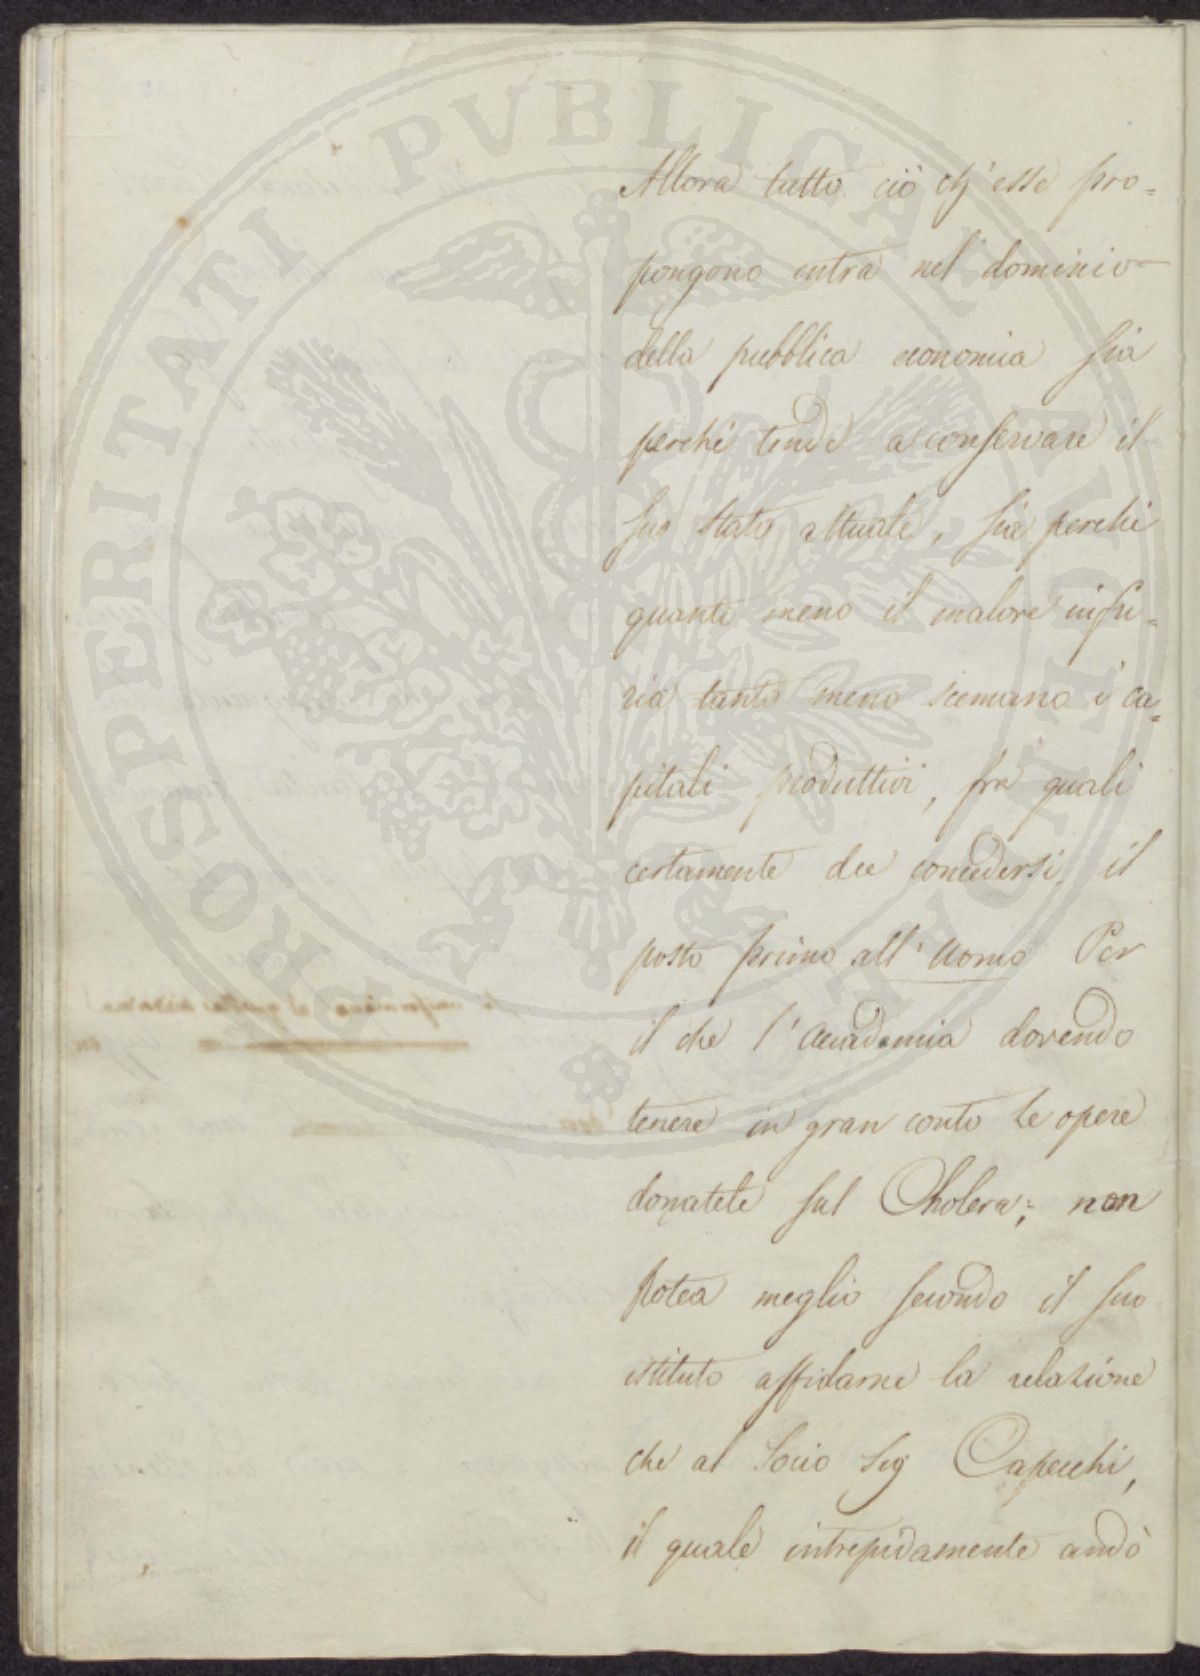 PROSPERITATI PVBLICAE AVGENDAE
Allora tutto ciò ch'esse pro=
pongono entra nel dominio
della pubblica economia sia
perché tende a conservare il
suo stato attuale, sia perché
quanto meno il malore infu=
ria tanto meno scemano i ca=
pitali produttivi, fra quali
certamente dee concedersi il
posto primo all'uomo Per
il che l'Accademia dovendo
tenere in gran conto le opere
donatele sul Cholera; non
potea meglio secondo il suo
istituto affidarne la relazione
che al Socio Sig Capecchi,
il quale intrepidamente andò